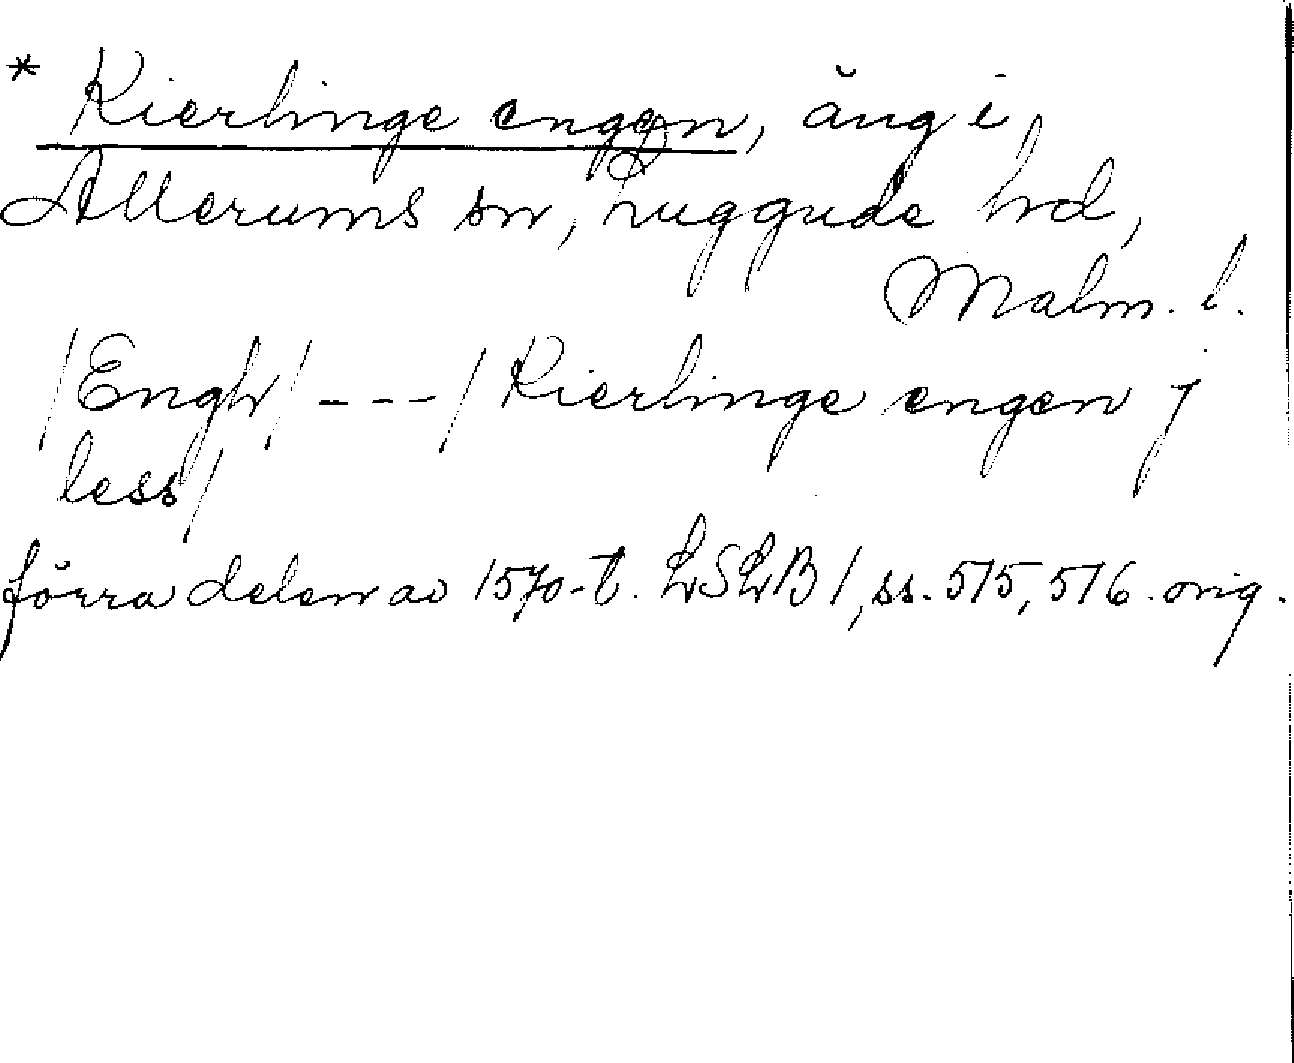 * Kierlinge engen, äng i
Allerums sn, Luggude hd,
Malm. l.
/Engh/ - - - / Kierlinge engen j
less/
förra delen av 1570-t. LSLB 1, ss. 515, 516. orig.